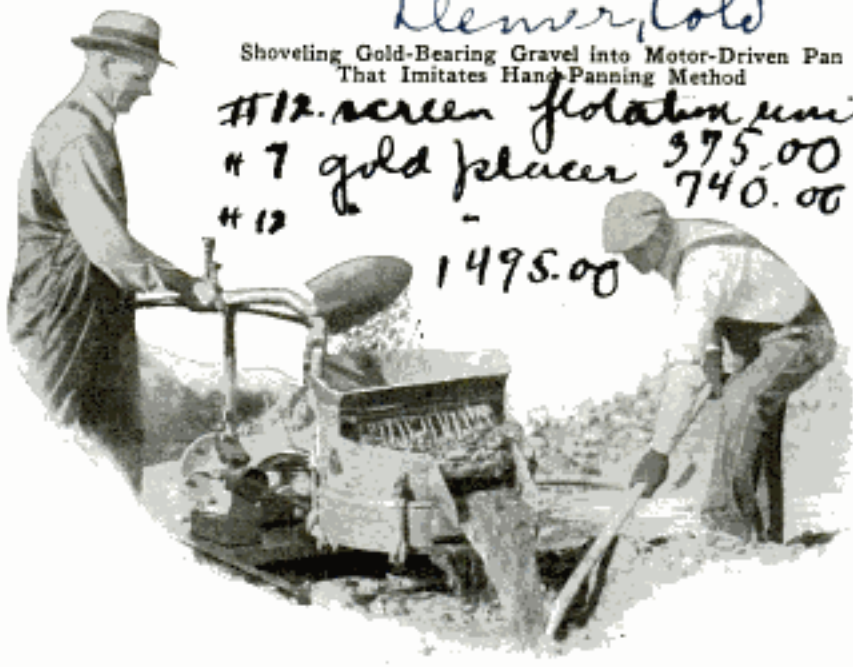 Denver, Colo
Shoveling Gold-Bearing Gravel into Motor-Driven Pan
That Imitates Hand-Panning Method
#12. screen flotation uni
375.00
# 7 gold placer 740.00
# 12 " "
1495.00